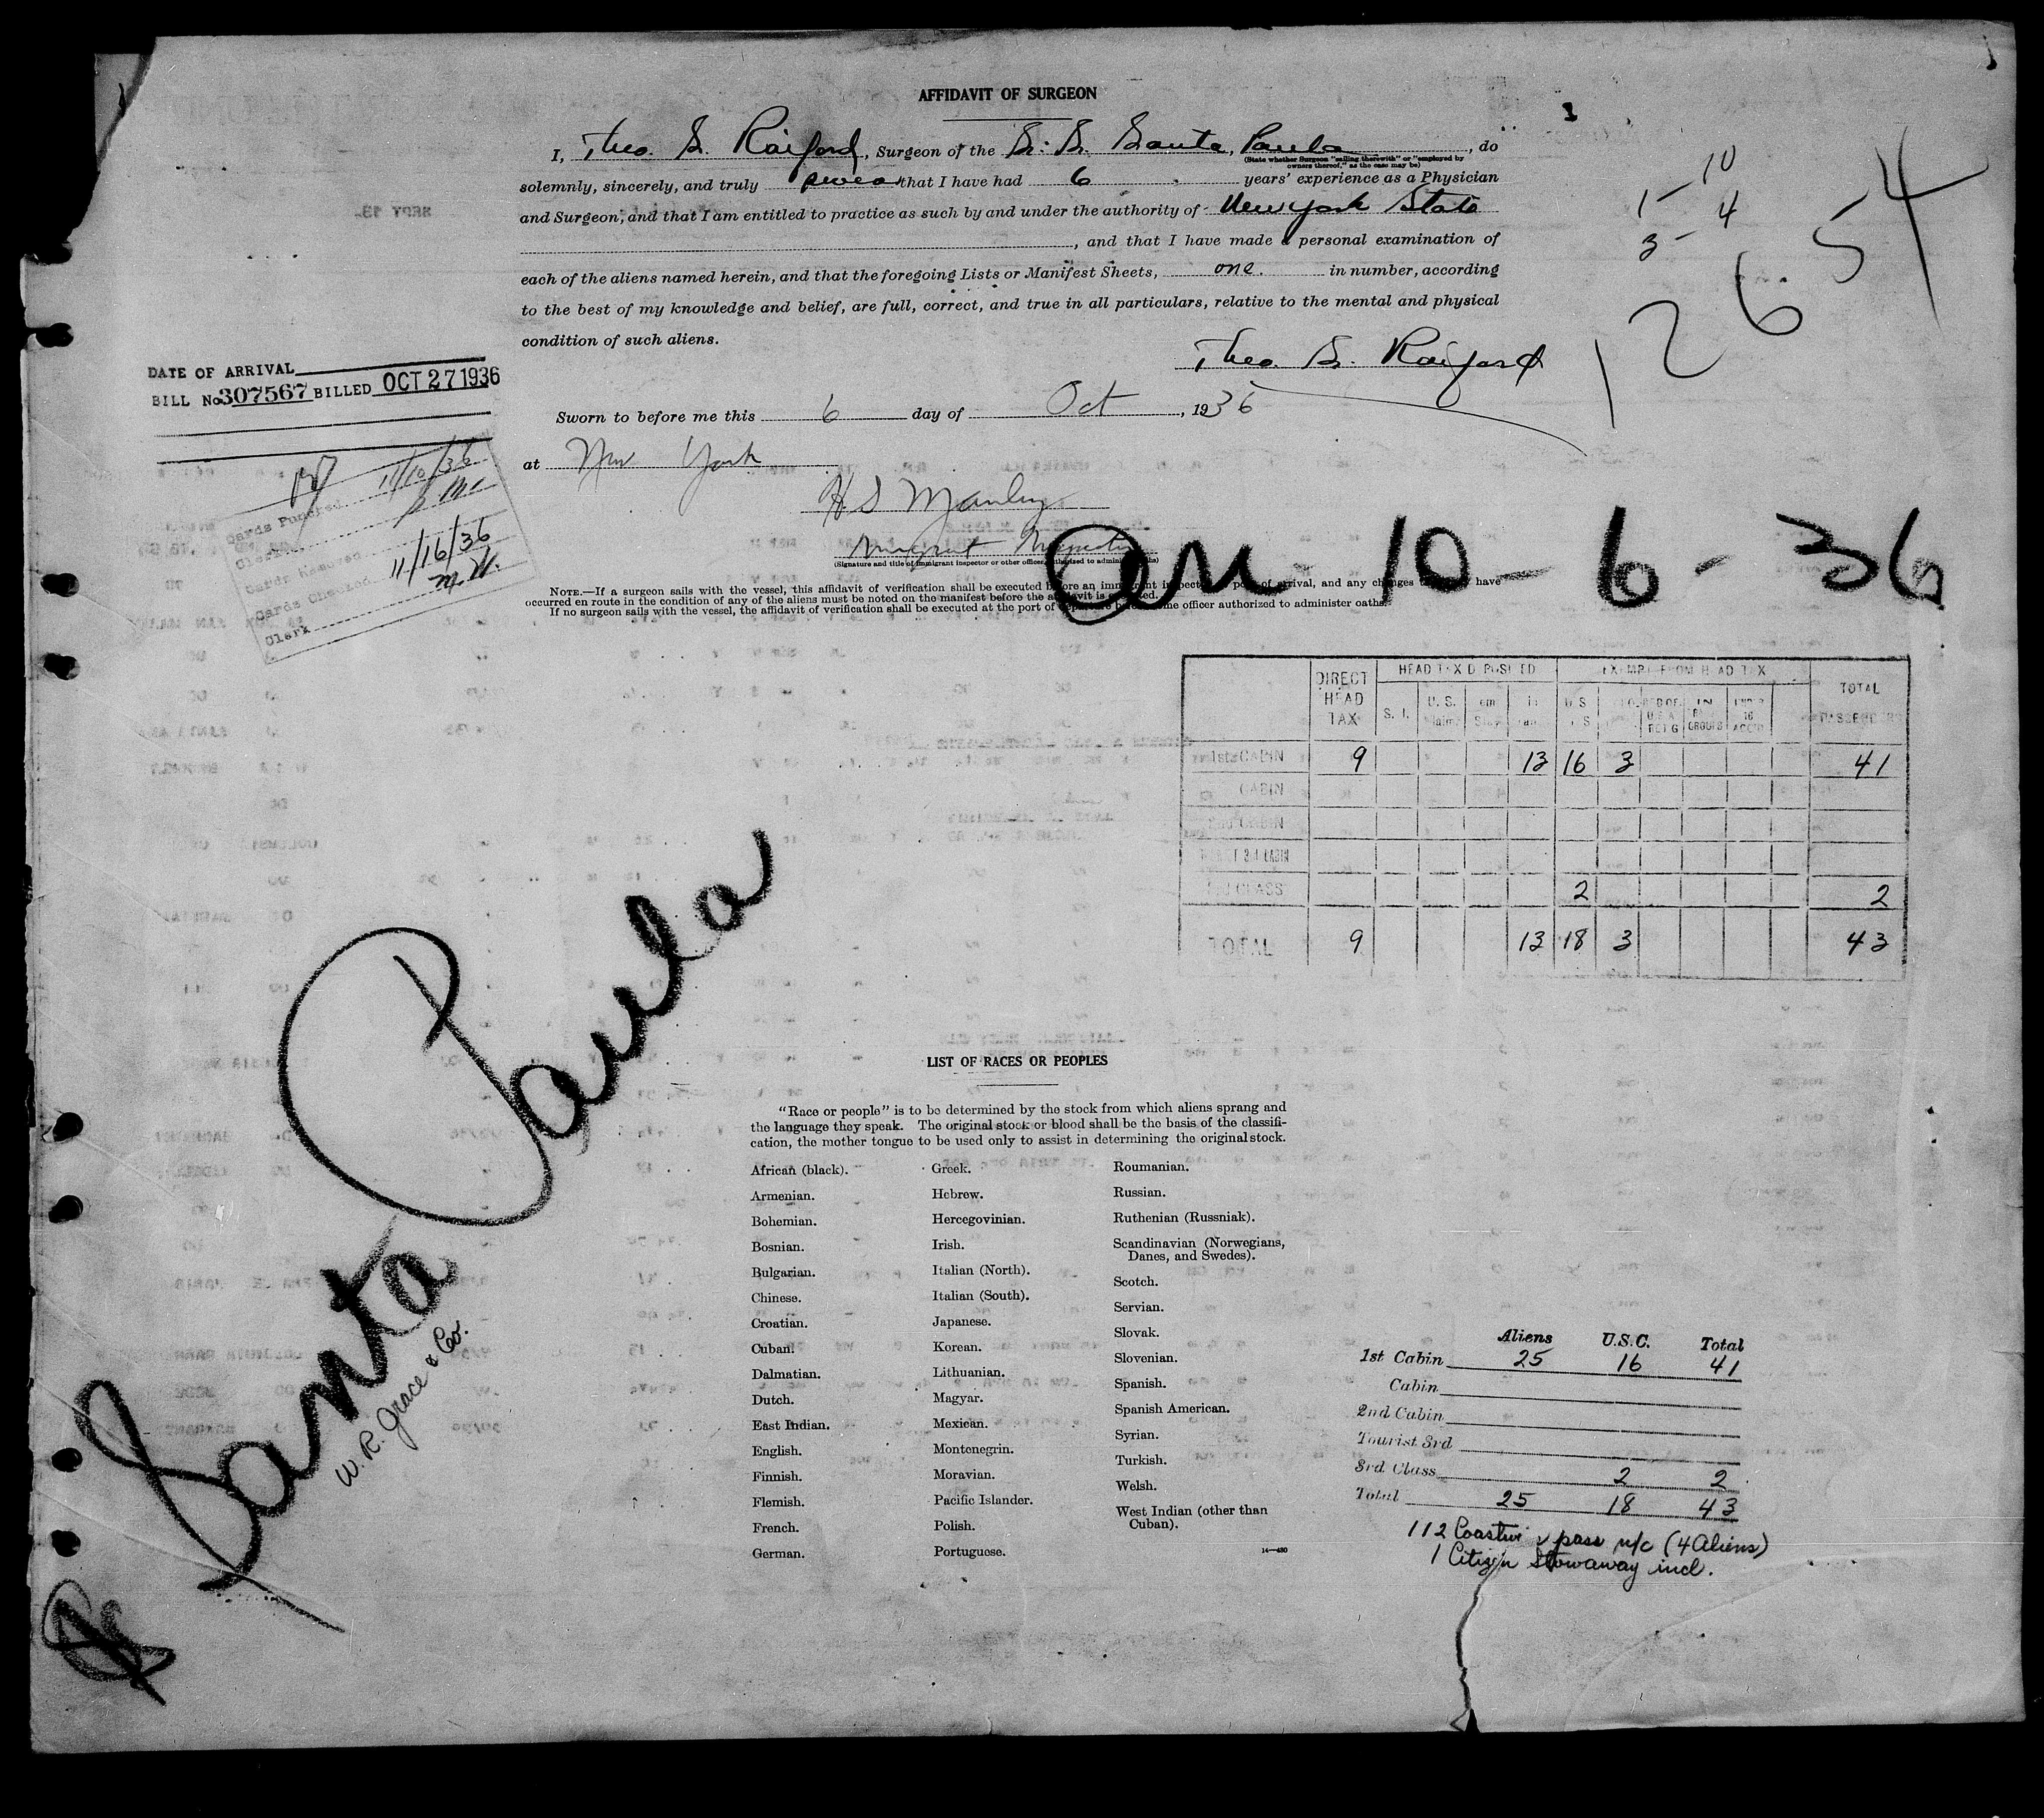 AFFIDAVIT OF SURGEON
I, Theo. S. Raiford, Surgeon of the S. S. Santa Paula, do
(State whether Surgeon "sailing therewith" or "employed by
owners thereof," as the case may be)
solemnly, sincerely, and truly swear that I have had 6 years' experience as a Physician
and Surgeon, and that I am entitled to practice as such by and under the authority of New York State
, and that I have made a personal examination of
each of the aliens named herein, and that the foregoing Lists or Manifest Sheets, one. in number, according
to the best of my knowledge and belief, are full, correct, and true in all particulars, relative to the mental and physical
condition of such aliens.
Theo. S. Raiford
Sworn to before me this 6 day of Oct, 1936
at New York
H S Manley
Immigrant Inspector
(Signature and title of immigrant inspector or other officer authorized to administer oaths)
NOTE.—If a surgeon sails with the vessel, this affidavit of verification shall be executed before an immigrant inspector at port of arrival, and any changes have
occurred en route in the condition of any of the aliens must be noted on the manifest before the affidavit is executed.
If no surgeon sails with the vessel, the affidavit of verification shall be executed at the port of departure before some officer authorized to administer oaths.
10
1- 4
3-
12654
DATE OF ARRIVAL
BILL No. 307567 BILLED OCT 27 1936
11/10/36
Cards Punched
Clerk
Cards Removed
11/16/36
Cards Checked
M.W.
Clerk
arr 10-6-36
DIRECT HEAD TAX
HEAD TAX DEPOSITED
EXEMPT FROM HEAD TAX
TOTAL PASSENGERS
S. I.
U. S.
1st CABIN 9 13 16 3 41
CABIN
2nd CABIN
TOURIST 3rd CABIN
3rd CLASS 2 2
TOTAL 9 13 18 3 43
Santa Paula
W. R. Grace & Co.
LIST OF RACES OR PEOPLES
"Race or people" is to be determined by the stock from which aliens sprang and
the language they speak. The original stock or blood shall be the basis of the classifi-
cation, the mother tongue to be used only to assist in determining the original stock.
African (black).
Armenian.
Bohemian.
Bosnian.
Bulgarian.
Chinese.
Croatian.
Cuban.
Dalmatian.
Dutch.
East Indian.
English.
Finnish.
Flemish.
French.
German.
Greek.
Hebrew.
Hercegovinian.
Irish.
Italian (North).
Italian (South).
Japanese.
Korean.
Lithuanian.
Magyar.
Mexican.
Montenegrin.
Moravian.
Pacific Islander.
Polish.
Portuguese.
Roumanian.
Russian.
Ruthenian (Russniak).
Scandinavian (Norwegians,
Danes, and Swedes).
Scotch.
Servian.
Slovak.
Slovenian.
Spanish.
Spanish American.
Syrian.
Turkish.
Welsh.
West Indian (other than
Cuban).
14—430
Aliens U.S.C. Total
1st Cabin 25 16 41
Cabin
2nd Cabin
Tourist 3rd
3rd Class 2 2
Total 25 18 43
112 Coastwise pass n/c (4 Aliens)
1 Citizen Stowaway incl.